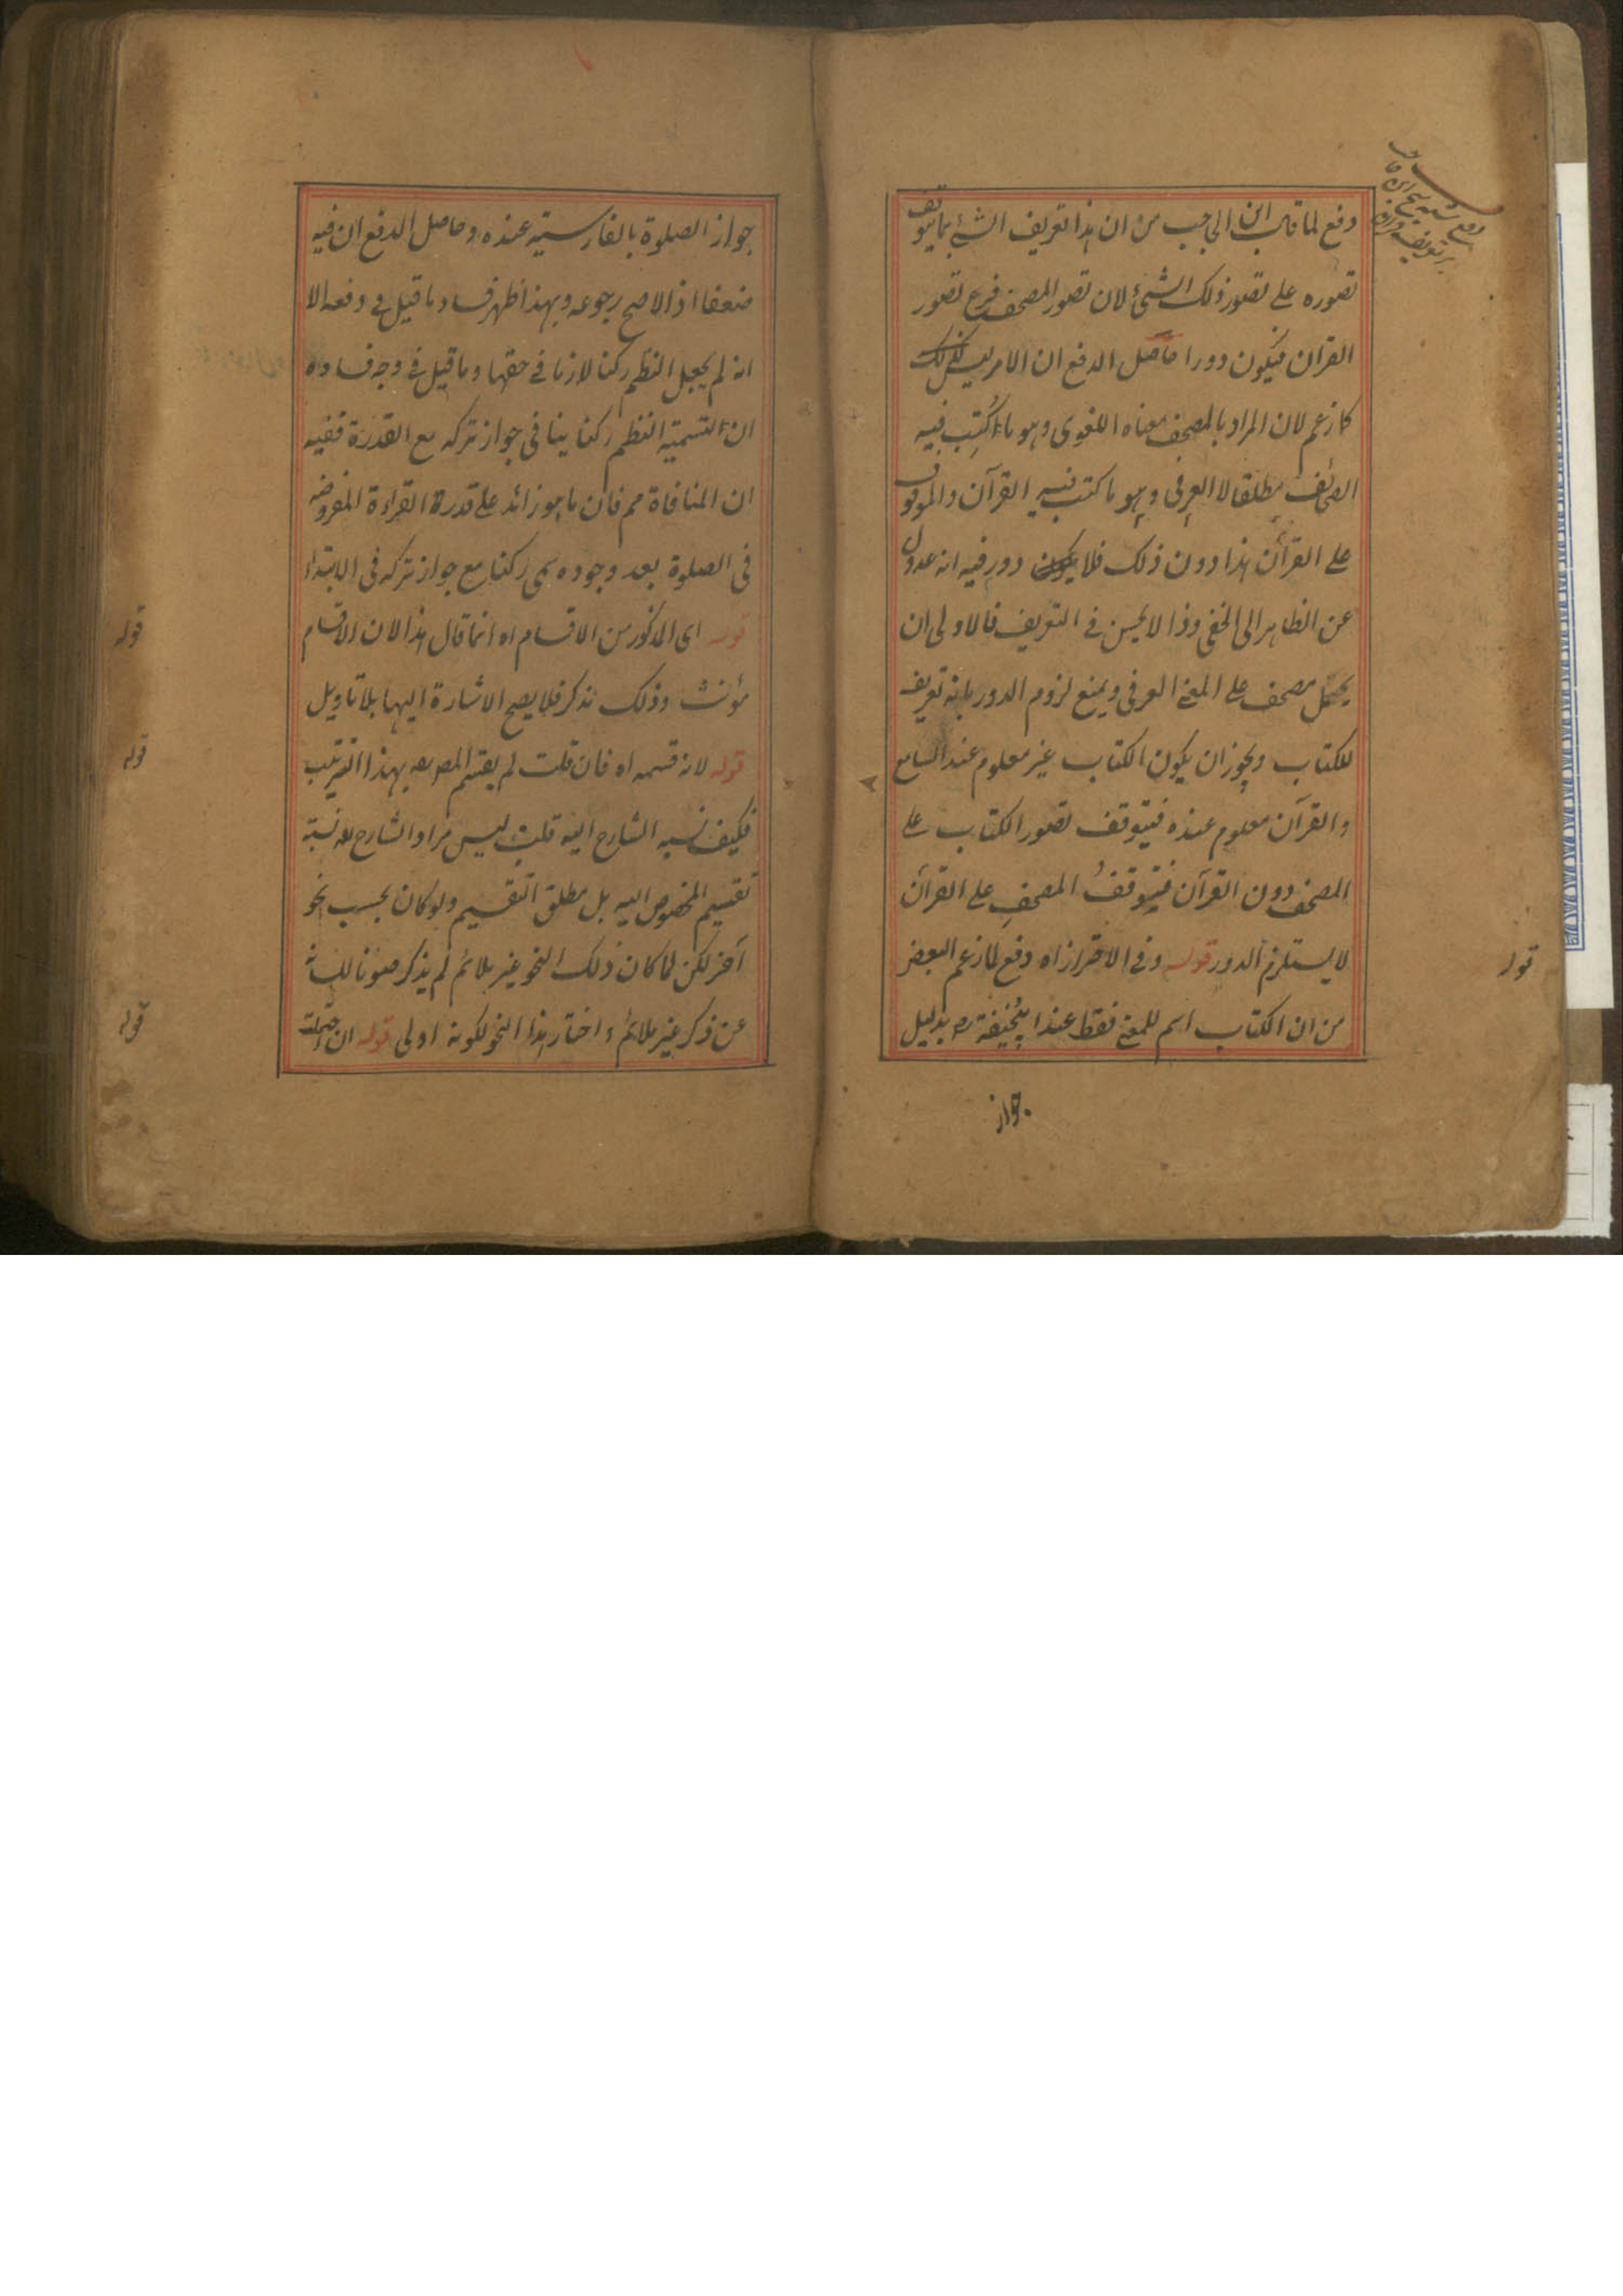 دفع لما قال ابن الحاجب من ان هذا تعريف الشئ بما يتوقف
تصوره على تصور ذلك الشئ لان تصور المصحف فرع تصور
القران فيكون دورا حاصل الدفع ان الامر ليس كذلك
كما زعم لان المراد بالمصحف معناه اللغوى وهو ما اكتب فيه
الصحائف مطلقا لا العرفى وهو ما كتب فيه القرآن والموقوف
على القرآن هذا دون ذلك فلا يكون دور فيه انه عدول
عن الظاهر الى الخفى وذا لا يحسن فى التعريف فالاولى ان
يحمل مصحف على المعنى العرفى ويمنع لزوم الدور بانه تعريف
للكتاب ويجوز ان يكون الكتاب غير معلوم عند السامع
والقرآن معلوم عنده فيتوقف تصور الكتاب على
المصحف دون القرآن فيتوقف المصحف على القرآن
لا يستلزم الدور قوله وفى الاحتراز اه دفع لما زعم البعض
من ان الكتاب اسم للمعنى فقط عند ابيحنيفة رح بدليل
جواز
قوله
جواز الصلوة بالفارسية عنده وحاصل الدفع ان فيه
ضعفا اذ الاصح رجوعه وبهذا ظهر فساد ما قيل فى دفعه الا
انه لم يجعل النظم ركنا لازما فى حقها وما قيل فى وجه فساده
ان التسمية النظم ركنا ينافى جواز تركه مع القدرة ففيه
ان المنافاة مم فان ما هو زائد على قدرة القراءة المفروضه
فى الصلوة بعد وجوده سمى ركنا مع جواز تركه فى الابتداء
قوله اى المذكور من الاقسام اه انما قال هذا لان الاقسام
مؤنث وذلك مذكر فلا يصح الاشارة اليها بلا تاويل
قوله لانه قسمه اه فان قلت لم يقسم المص رح بهذا الترتيب
فكيف نسبه الشارح اليه قلت ليس مراد الشارح رح نسبة
تقسيم المخصوص اليه بل مطلق التقسيم ولو كان بحسب نحو
آخر لكن لما كان ذلك النحو غير ملائم لم يذكر صونا للسانه
عن ذكر غير ملائم واختار هذا النحو لكونه اولى قوله ان
قوله
قوله
قوله